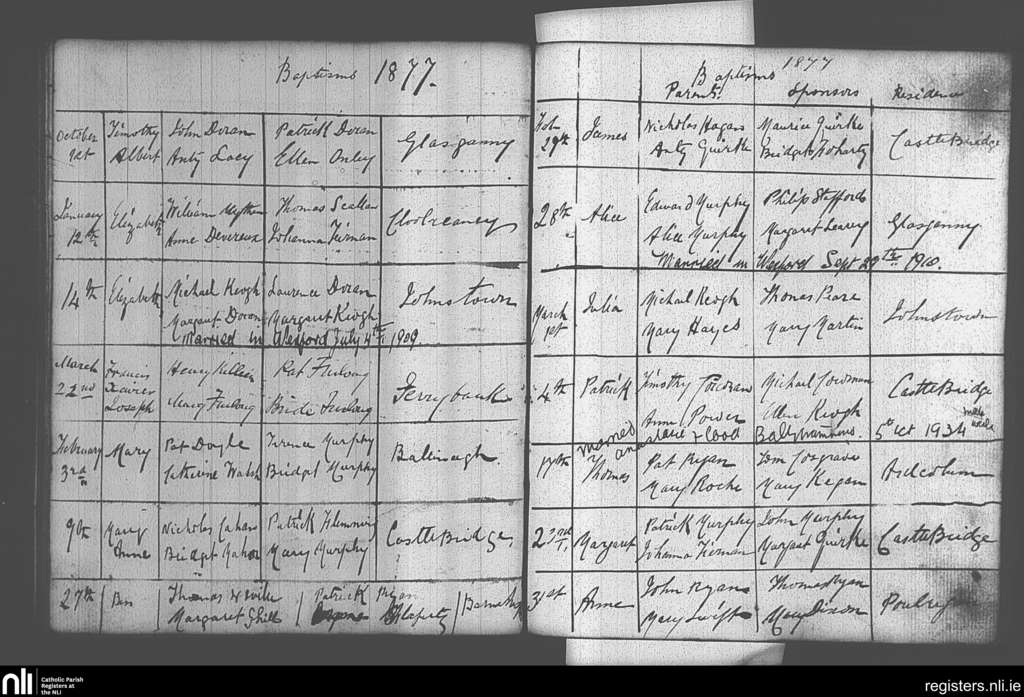 Baptisms 1877.
October 1st Timothy Albert John Doran Patrick Doran Glasganny
Anty Lacy Ellen Onley
January 12th Elizabeth William Thomas Scallan
Anne Devereux Johanna Kirnan
14th Elizabeth Michael Keogh Laurence Doran Johnstown
Margaret Doran Margaret Keogh
Married in Wexford July 4th 1909.
March 22nd Francis Xavier Joseph Henry Killeen Pat Furlong Ferrybank
Mary Furlong Bride Furlong
February 3rd Mary Pat Doyle Terence Murphy Balinagh
Catherine Walsh Bridget Murphy
9th Mary Anne Nicholas Patrick CastleBridge
Bridget Mary Murphy
27th Thomas Neville Patrick Ryan
Margaret
Baptisms 1877
Parents. Sponsors Residence
Feb James Nicholas Hagans Maurice Quirke CastleBridge
Anty Quirke Bridget Doharty
28th Alice Edward Murphy Philip Stafford Glasganny
Alice Murphy Margaret Leary
Married in Wexford Sept 29th 1910.
March 1st Julia Michael Keogh Thomas Peare Johnstown
Mary Hayes Mary Martin
4th Patrick Timothy Corcoran Michael Cowman CastleBridge
Anne Power Ellen Keogh
married 5th Oct 1934
17th Thomas Pat Ryan Tom Cosgrave Ardcolum
Mary Roche Mary Kegan
23rd Margaret Patrick Murphy John Murphy CastleBridge
Johanna Kirnan Margaret Quirke
31st Anne John Ryan Thomas Ryan
Mary Swift Mary Dixon
nli Catholic Parish
Registers at
the NLI
registers.nli.ie